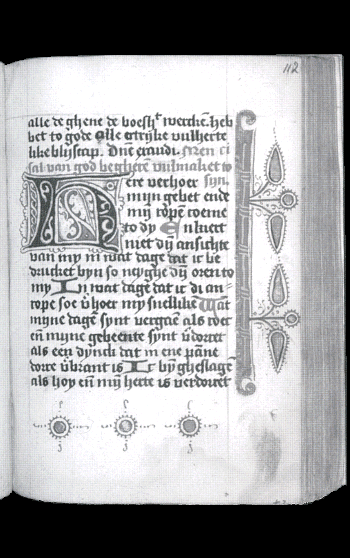 112
alle de ghene de voesht wercken heb
bet to gode Alle otrijke vulherte
like blijscap. Dne exaudi. Men ci
sal van god begheren vulmaket to
ere verhoer syn.
mijn gebet ende
mij rope coeme
to dy En kieer
niet dij ansichte
van my in wat dage dat ic be
drucket byn so neyghe dij oren to
my In wat dage dat ic di an
rope soe vhoer my snellike Want
myne dage synt vergaen als roec
en myne gebeente synt vdorret
als een dynck dat in ene pane
dorre vbrant is Ic byn gheslagen
als hoy en mij herte is verdorret